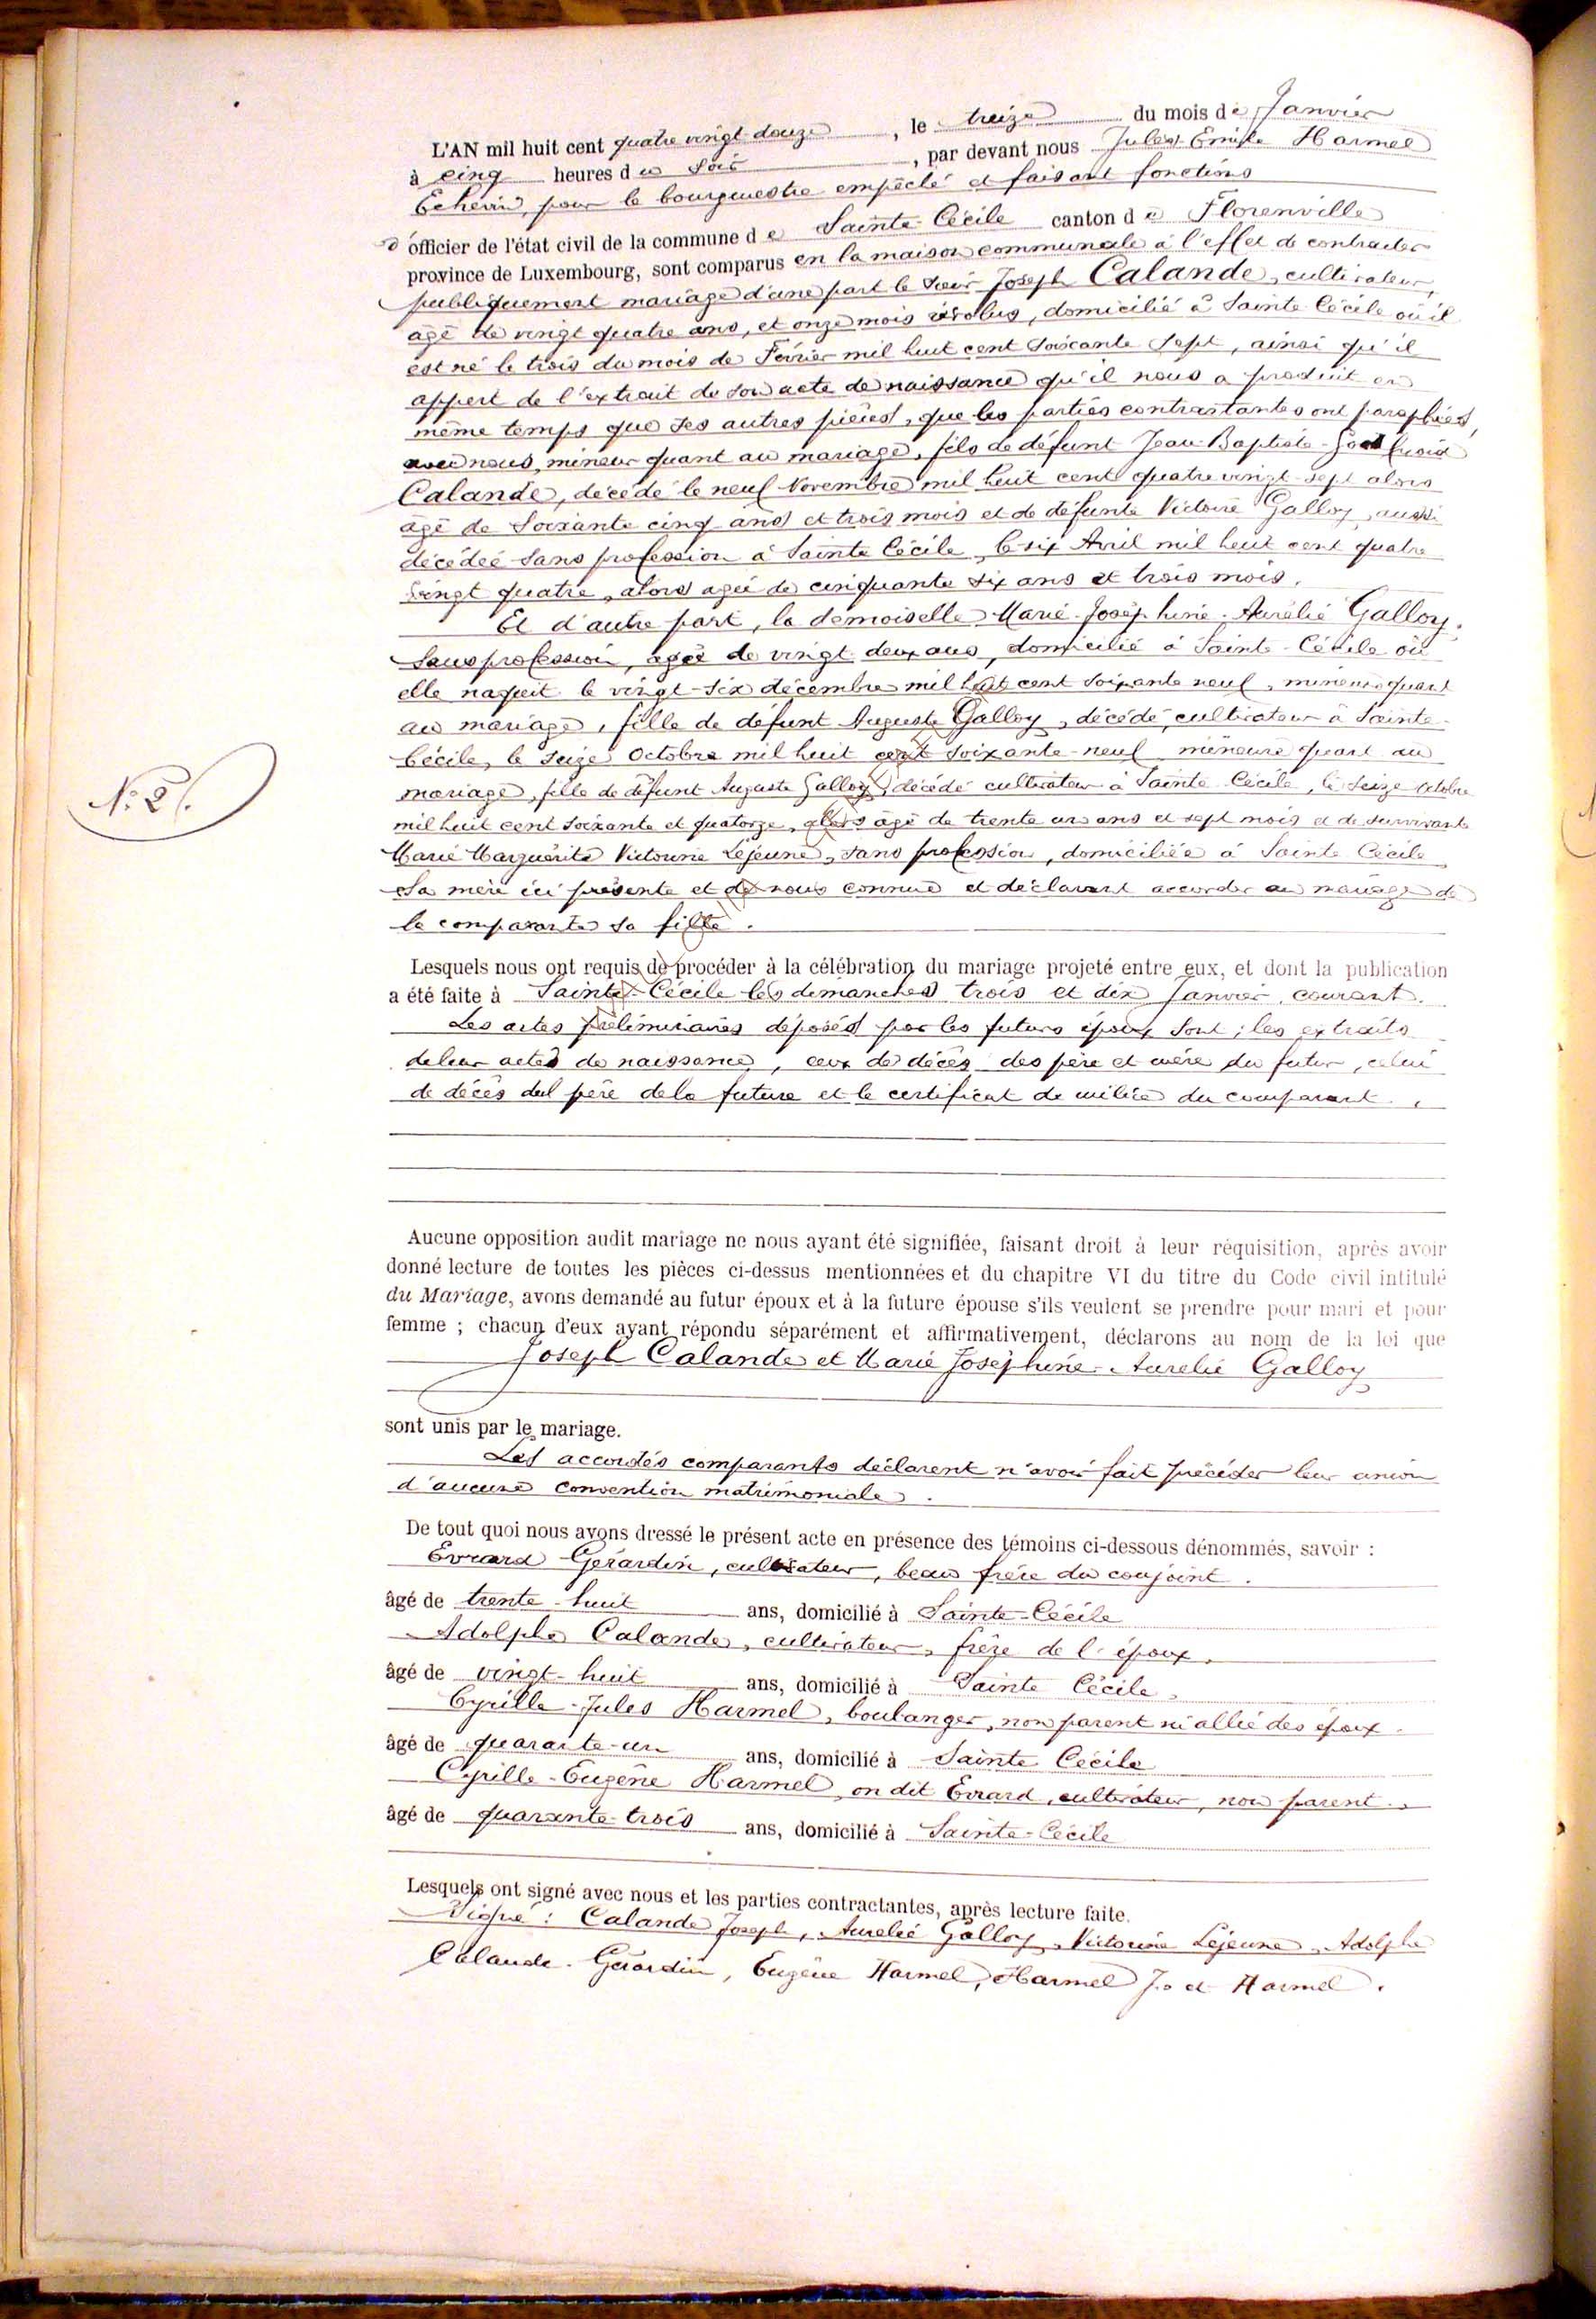 L'AN mil huit cent quatre vingt-douze, le treize du mois de Janvier
à cinq heures du soir, par devant nous Jules-Emile Harmel
Echevin, pour le bourgmestre empêché et faisant fonctions
d'officier de l'état civil de la commune de Sainte-Cécile canton de Florenville
province de Luxembourg, sont comparus en la maison communale à l'effet de contracter
publiquement mariage d'une part le sieur Joseph Calande, cultivateur,
agé de vingt quatre ans, et onze mois révolus, domicilié à Sainte Cécile où il
est né le trois du mois de Février mil huit cent soixante sept, ainsi qu'il
appert de l'extrait de son acte de naissance qu'il nous a produit en
même temps que ses autres pièces, que les parties contractantes ont paraphées,
avec nous, mineur quant au mariage, fils de défunt Jean-Baptiste
Calande, décédé le neuf Novembre mil huit cent quatre vingt-sept alors
agé de soixante cinq ans et trois mois et de défunte Victoire Galloy, aussi
décédée sans profession à Sainte Cécile, le six Avril mil huit cent quatre
vingt quatre, alors agée de cinquante six ans et trois mois.
Et d'autre part, la demoiselle Marie-Joséphine-Aurélie Galloy,
sans profession, agée de vingt deux ans, domicilié à Sainte-Cécile où
elle naquit le vingt-six décembre mil huit cent soixante neuf, mineure quant
au mariage, fille de défunt Auguste Galloy, décédé, cultivateur à Sainte-
Cécile, le seize Octobre mil huit cent soixante-neuf mineure quant au
mariage, fille de défunt Auguste Galloy, décédé cultivateur à Sainte Cécile, le seize Octobre
mil huit cent soixante et quatorze, alors âgé de trente un ans et sept mois et de survivante
Marie Marguérite Victorine Léjeune, sans profession, domiciliée à Sainte Cécile
sa mère ici présente et de nous connue et déclarant accorder au mariage de
la comparante sa fille.
N° 2.
Lesquels nous ont requis de procéder à la célébration du mariage projeté entre eux, et dont la publication
a été faite à Sainte-Cécile les dimanches trois et dix Janvier courant.
Les actes préliminaires déposés par les futurs époux sont; les extraits
de leur actes de naissance, ceux de décès des père et mère du futur, celui
de décès du père de la future et le certificat de milice du comparant.
Aucune opposition audit mariage ne nous ayant été signifiée, faisant droit à leur réquisition, après avoir
donné lecture de toutes les pièces ci-dessus mentionnées et du chapitre VI du titre du Code civil intitulé
du Mariage, avons demandé au futur époux et à la future épouse s'ils veulent se prendre pour mari et pour
femme ; chacun d'eux ayant répondu séparément et affirmativement, déclarons au nom de la loi que
Joseph Calande et Marie Joséphine-Aurelie Galloy
sont unis par le mariage.
Les accordés comparants déclarent n'avoir fait précéder leur union
d'aucune convention matrimoniale.
De tout quoi nous avons dressé le présent acte en présence des témoins ci-dessous dénommés, savoir :
Evrard Gérardin, cultivateur, beau frère du conjoint.
âgé de trente-huit ans, domicilié à Sainte-Cécile
Adolphe Calande, cultivateur, frère de l'époux,
âgé de vingt-huit ans, domicilié à Sainte Cécile,
Cyrille-Jules Harmel, boulanger, non parent ni allié des époux.
âgé de quarante-un ans, domicilié à Sainte Cécile
Cyrille-Eugène Harmel, on dit Evrard, cultivateur, non parent.
âgé de quarante-trois ans, domicilié à Sainte-Cécile
Lesquels ont signé avec nous et les parties contractantes, après lecture faite.
Signé : Calande Joseph, Aurelie Galloy, Victorine Léjeune, Adolphe
Calande. Gérardin, Eugène Harmel, Harmel J. et Harmel.